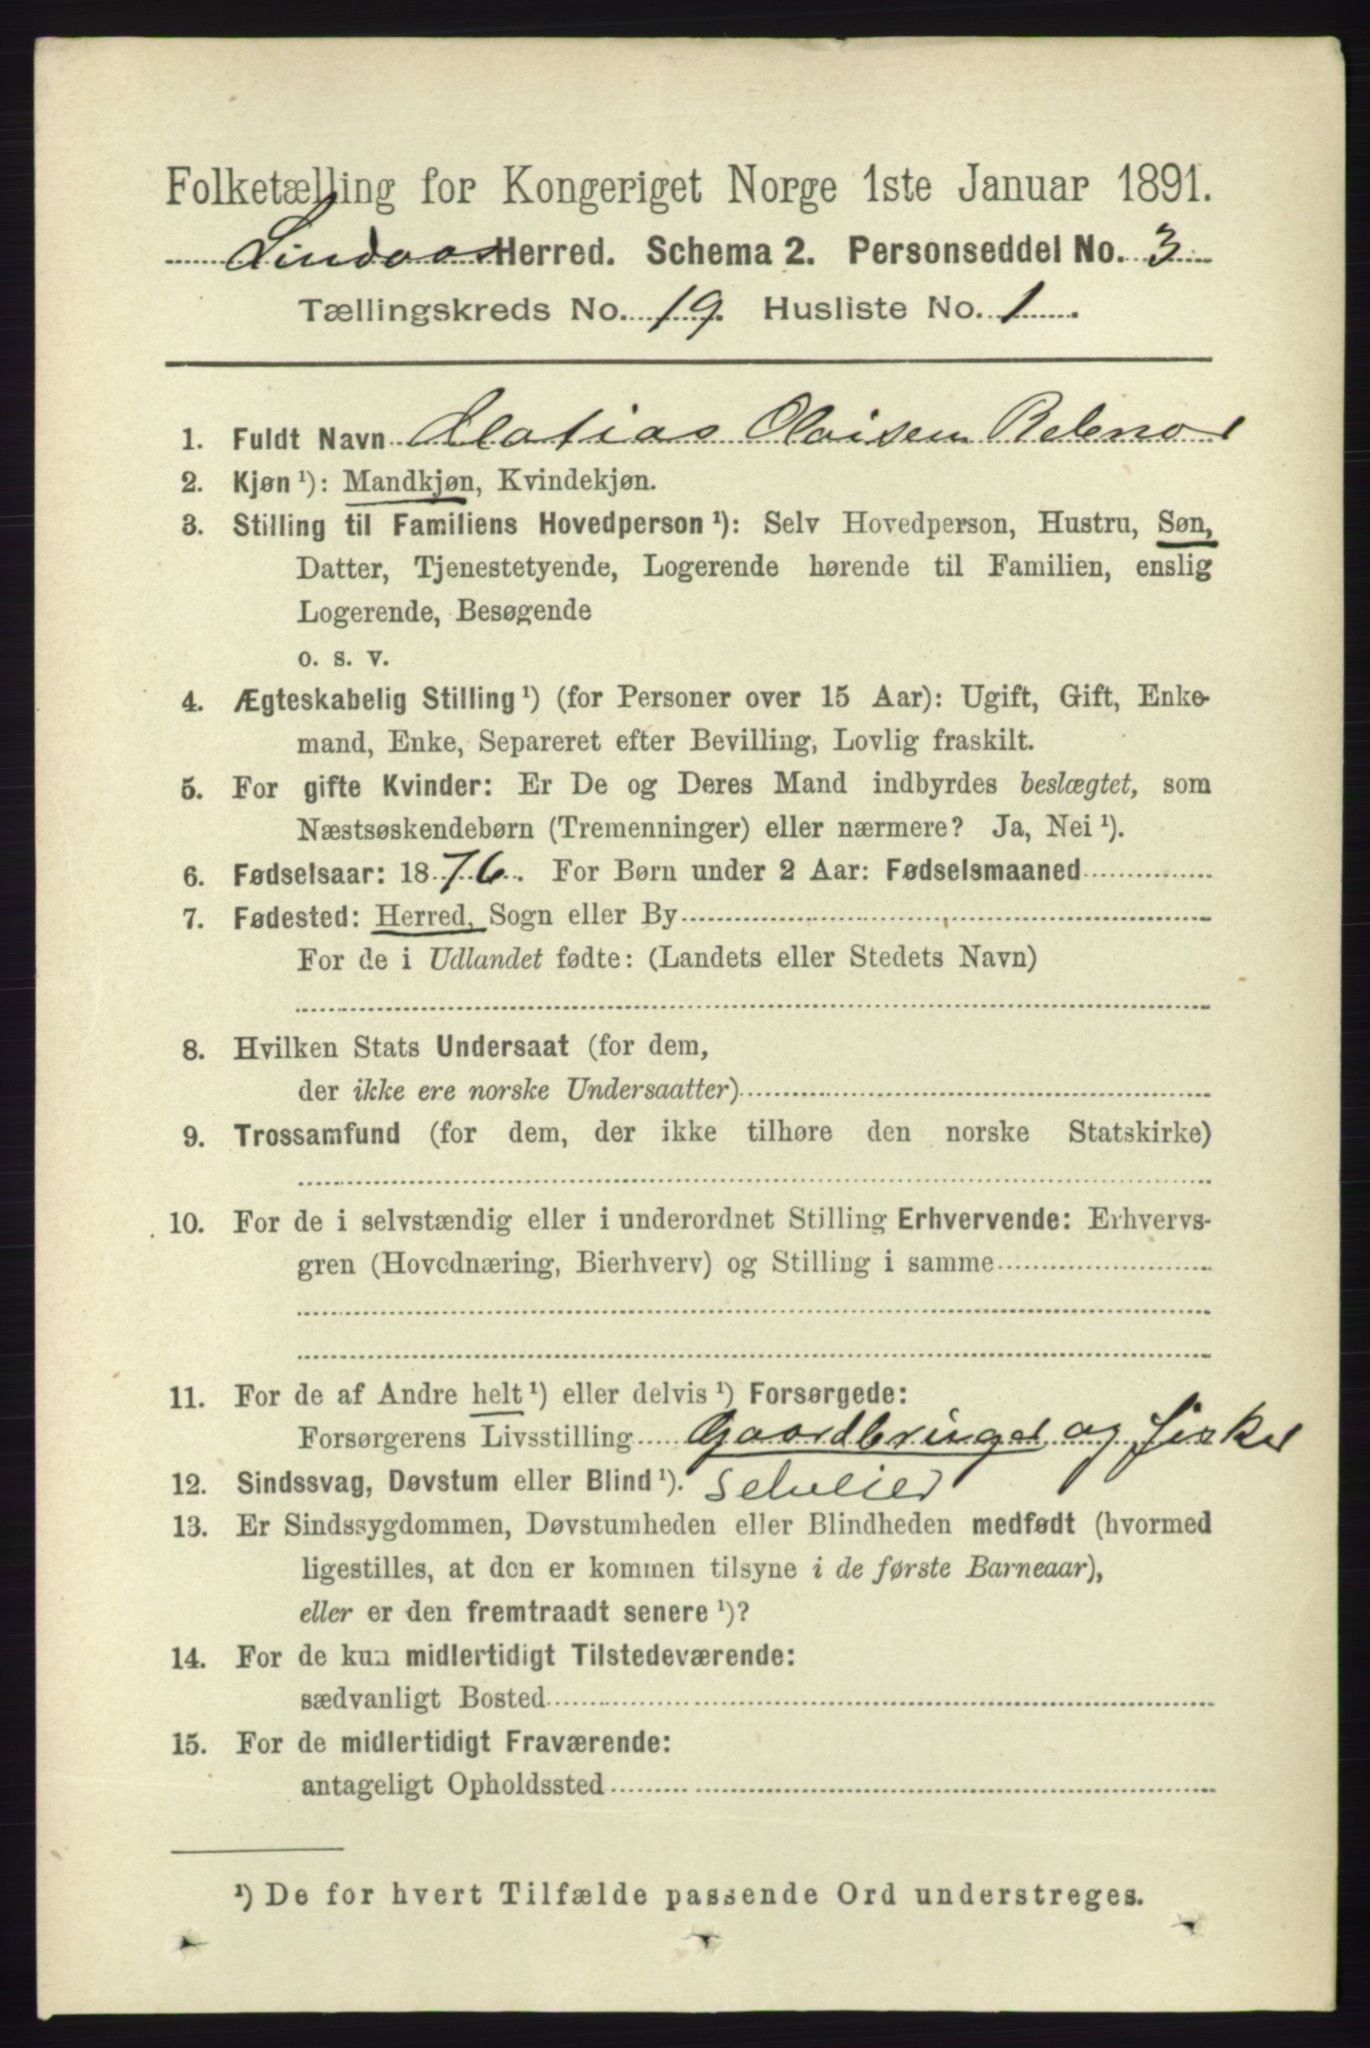 Folketælling for Kongeriget Norge 1ste Januar 1891.
Lindaas Herred. Schema 2. Personseddel No. 3
Tællingskreds No. 19. Husliste No. 1.
1. Fuldt Navn Matias Olaisen
2. Kjøn ¹): Mandkjøn, Kvindekjøn.
3. Stilling til Familiens Hovedperson ¹): Selv Hovedperson, Hustru, Søn,
Datter, Tjenestetyende, Logerende hørende til Familien, enslig
Logerende, Besøgende
o. s. v.
4. Ægteskabelig Stilling ¹) (for Personer over 15 Aar): Ugift, Gift, Enke-
mand, Enke, Separeret efter Bevilling, Lovlig fraskilt.
5. For gifte Kvinder: Er De og Deres Mand indbyrdes beslægtet, som
Næstsøskendebørn (Tremenninger) eller nærmere? Ja, Nei ¹).
6. Fødselsaar: 1876. For Børn under 2 Aar: Fødselsmaaned
7. Fødested: Herred, Sogn eller By
For de i Udlandet fødte: (Landets eller Stedets Navn)
8. Hvilken Stats Undersaat (for dem,
der ikke ere norske Undersaatter)
9. Trossamfund (for dem, der ikke tilhøre den norske Statskirke)
10. For de i selvstændig eller i underordnet Stilling Erhvervende: Erhvervs-
gren (Hovednæring, Bierhverv) og Stilling i samme
11. For de af Andre helt ¹) eller delvis ¹) Forsørgede:
Forsørgerens Livsstilling Gaardbruger og fisker
12. Sindssvag, Døvstum eller Blind ¹). selveier
13. Er Sindssygdommen, Døvstumheden eller Blindheden medfødt (hvormed
ligestilles, at den er kommen tilsyne i de første Barneaar),
eller er den fremtraadt senere ¹)?
14. For de kun midlertidigt Tilstedeværende:
sædvanligt Bosted
15. For de midlertidigt Fraværende:
antageligt Opholdssted
¹) De for hvert Tilfælde passende Ord understreges.